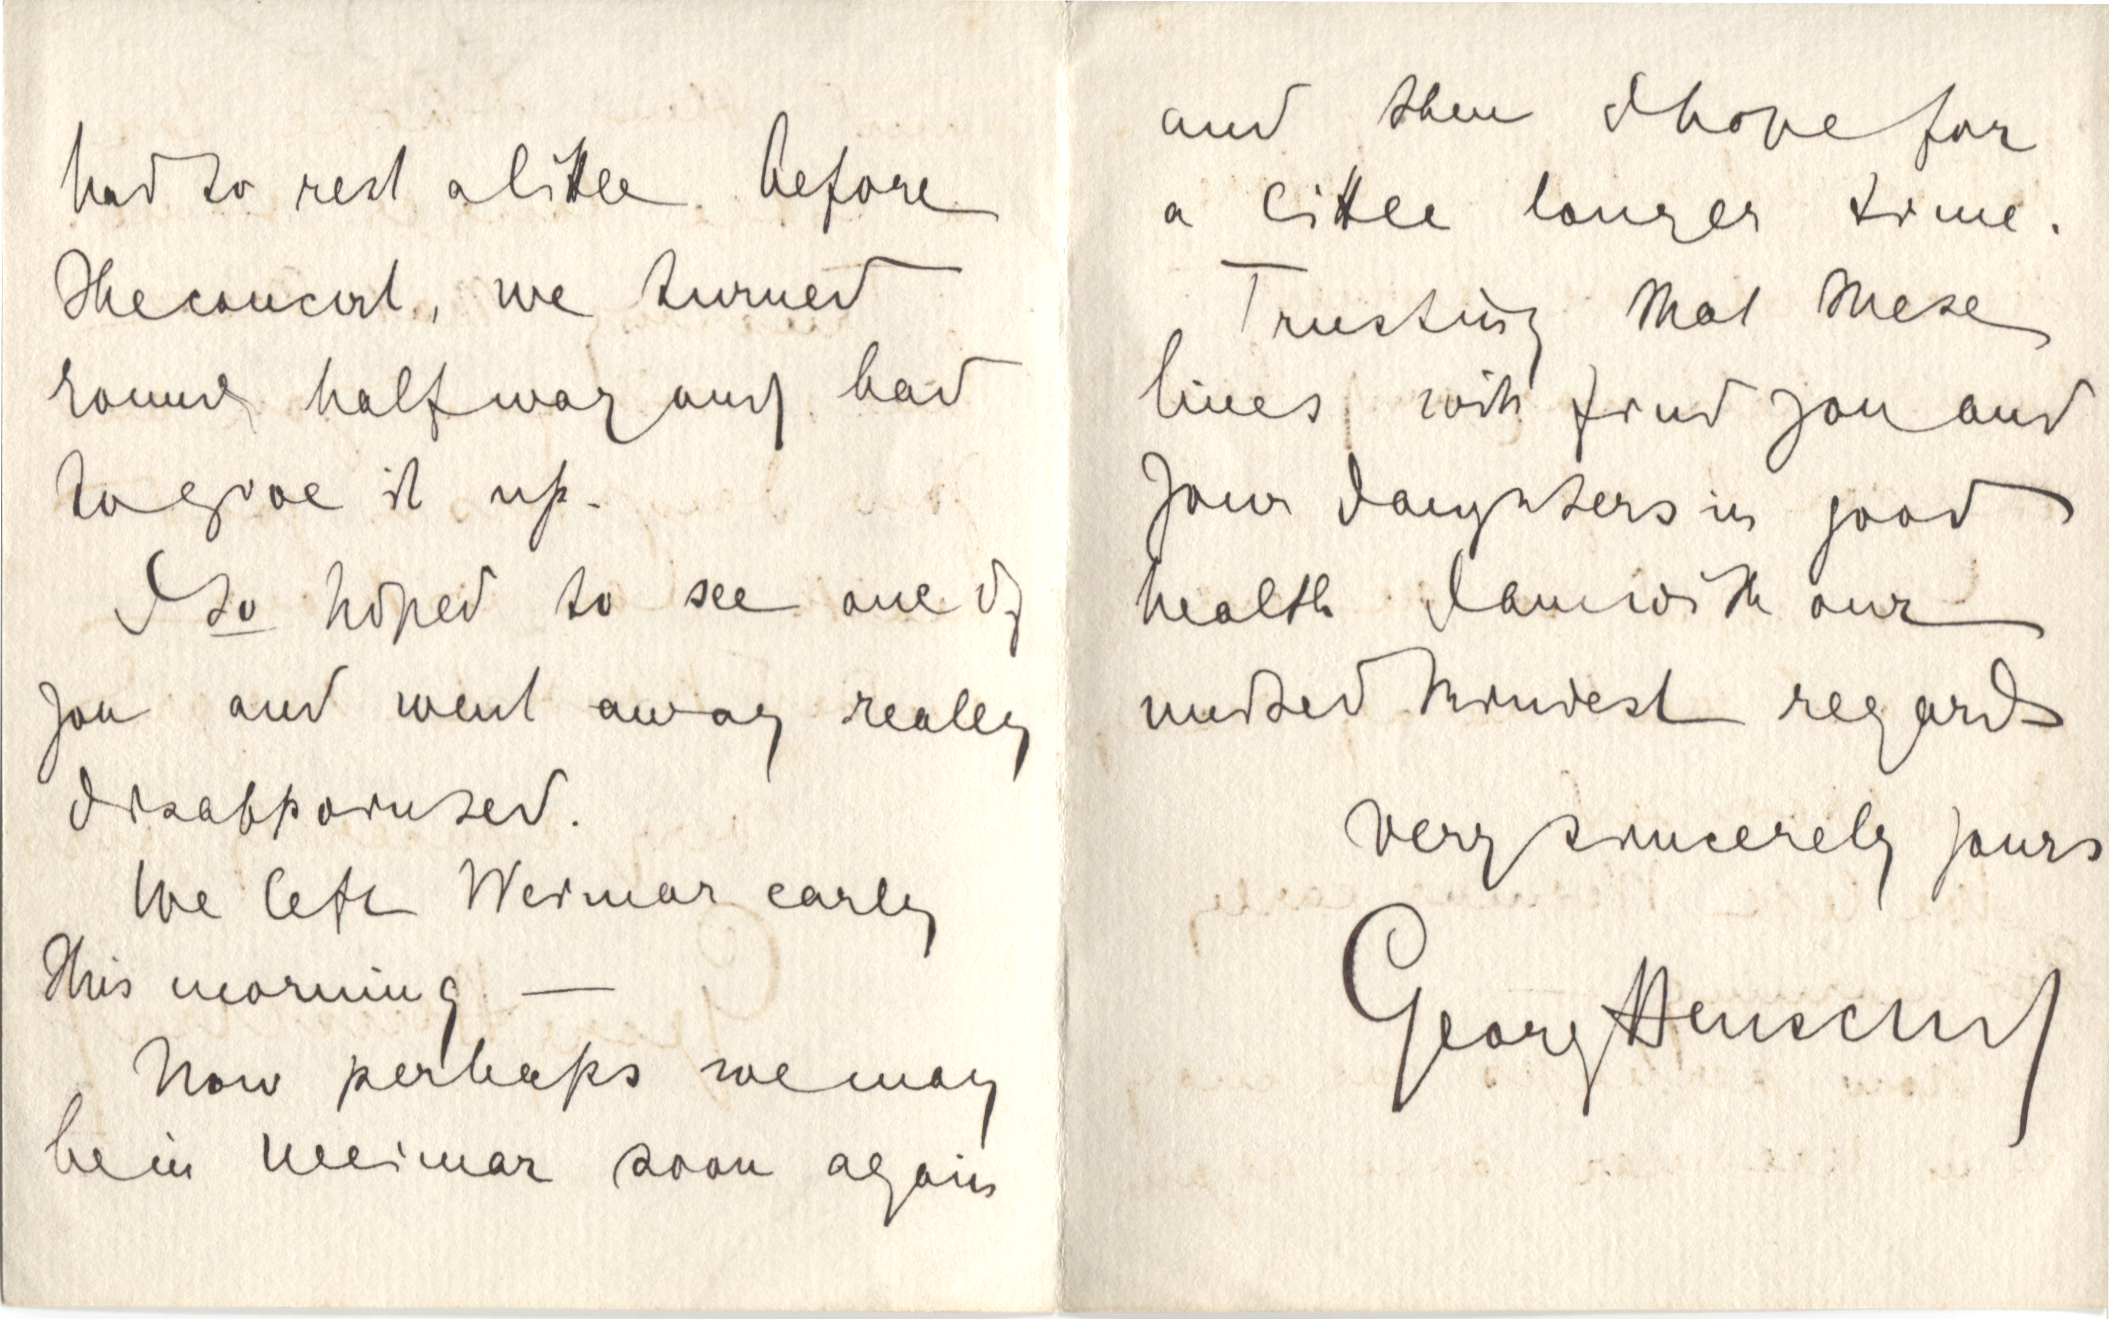 had to rest a little before
the concert, we turned
round halfway and had
to give it up.
I so hoped to see one of
you and went away really
disappointed.
We left Weimar early
this morning —
Now perhaps we may
be in Weimar soon again
and then I hope for
a little longer time.
Trusting that these
lines will find you and
your daughters in good
health I am with our
united kindest regards
very sincerely yours
Georg Henschel